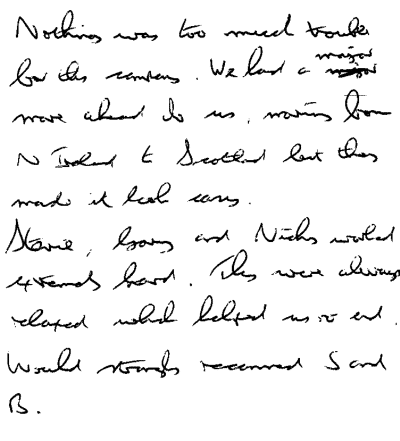 Nothing was too much trouble
for this company. We had a major
move ahead of us, moving from
N Ireland to Scotland but they
made it look easy.
Stevie, Gary and Nicky worked
extremely hard. They were always
relaxed which helped us no end.
Would strongly recommend S and
B.